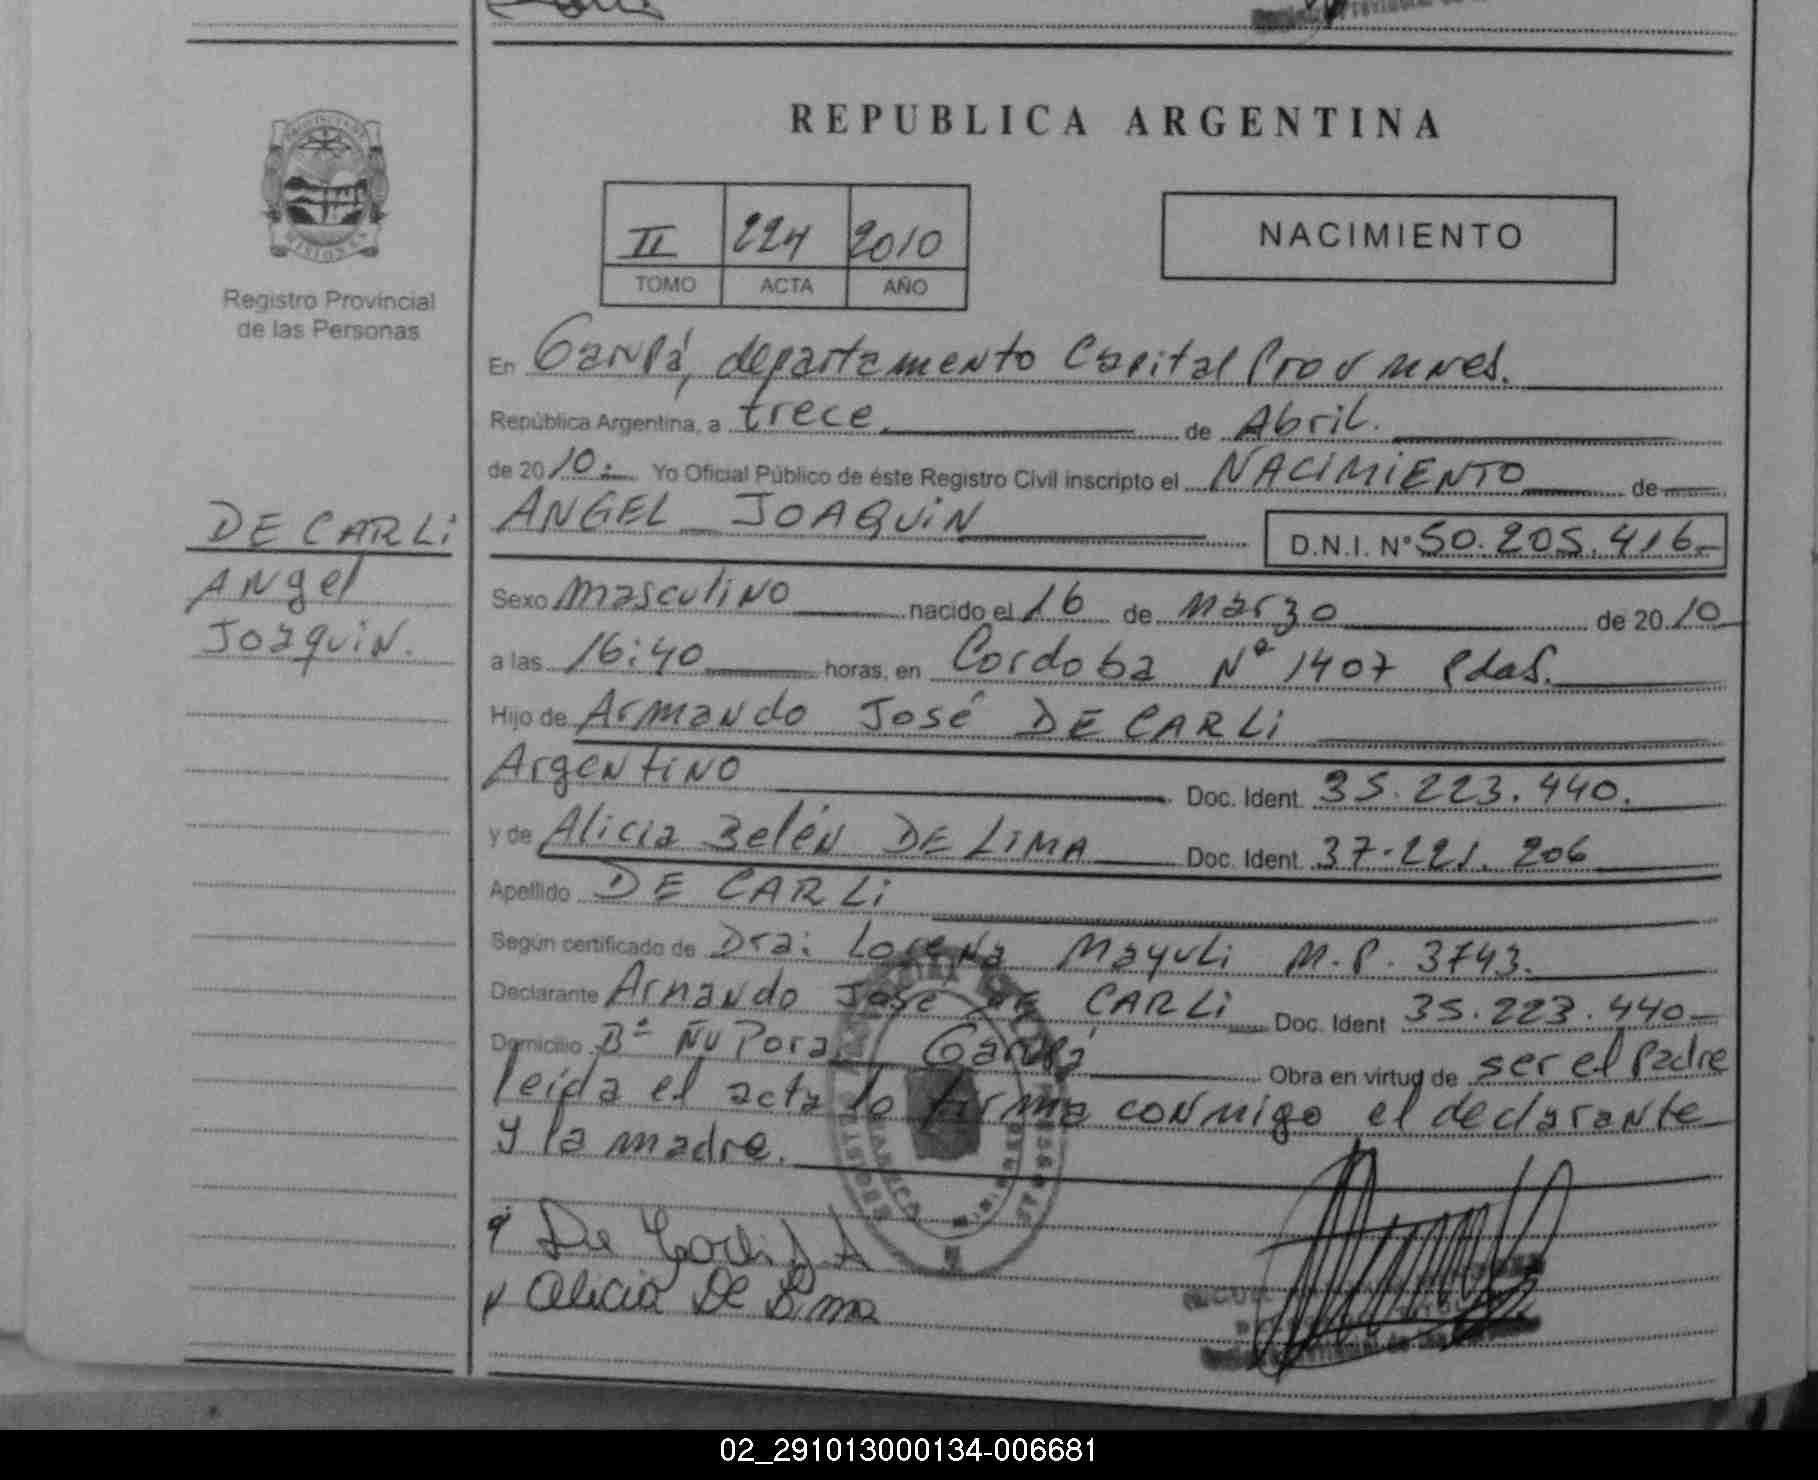 REPUBLICA ARGENTINA
NACIMIENTO
II 224 2010
TOMO ACTA AÑO
Registro Provincial
de las Personas
DE CARLi
ANgel
JoaquiN.
En Garupá, departamento Capital Prov
República Argentina, a trece de Abril.
de 2010.- Yo Oficial Público de éste Registro Civil inscripto el NACIMIENTO de
ANGEL JOAQUIN D.N.I. N° 50.205.416.-
Sexo masculino nacido el 16 de marzo de 2010
a las 16:40 horas, en Cordoba Nº 1407 Pdas.
Hijo de Armando José DE CARLi
Argentino Doc. Ident. 35.223.440.
y de Alicia Belén DE LIMA Doc. Ident. 37.221.206
Apellido DE CARLi
Según certificado de Dra: Lorena Mayuli M.P. 3743.
Declarante Armando José DE CARLi Doc. Ident 35.223.440-
Domicilio Bº Ñu Pora Garupá Obra en virtud de ser el padre
leida el acta lo firma conmigo el declarante
y la madre.
De Carli J A
Alicia De Lima
02_291013000134-006681